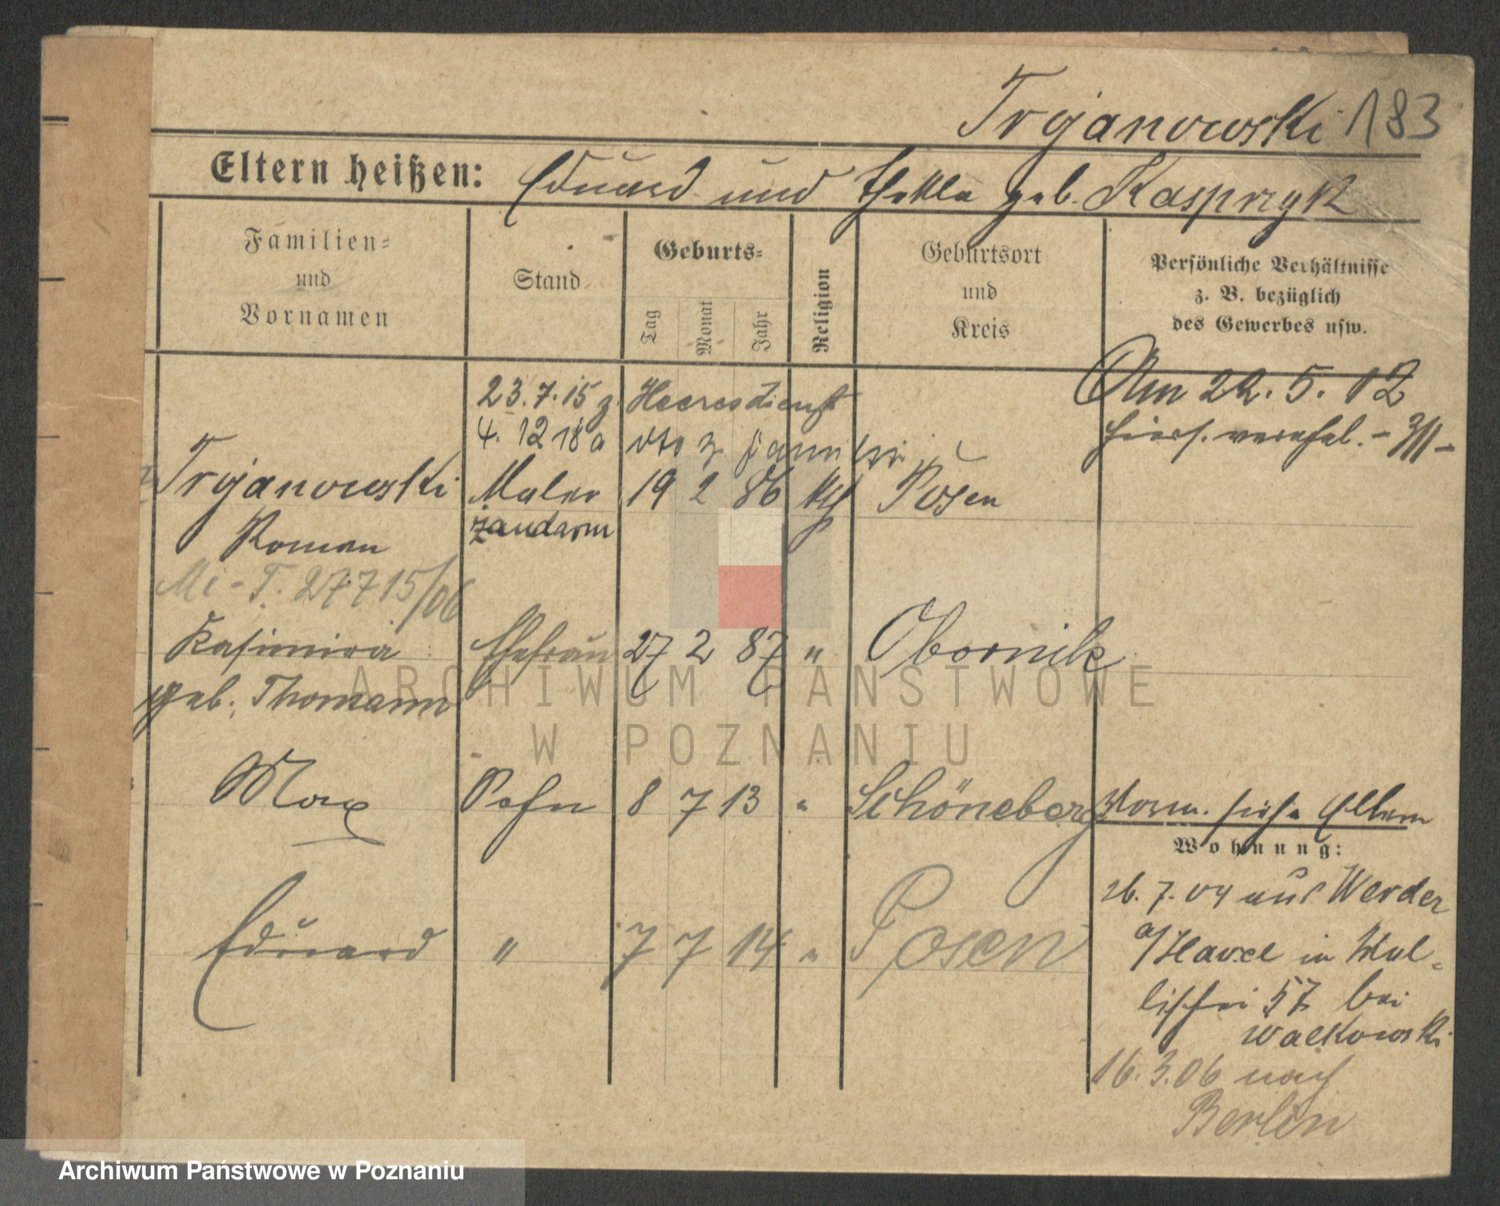 Trojanowski 183
Eltern heißen: Eduard und Thekla geb. Kasprzyk
Familien=
und
Vornamen
Stand
Geburts=
Tag
Monat
Jahr
Religion
Geburtsort
und
Kreis
Persönliche Verhältnisse
z. B. bezüglich
des Gewerbes usw.
23.7.15 z. Heeresdienst
4. 12 18 a dto z Familie
Am 22. 5. 12
hiers. verehel. -
Trojanowski Maler 19 2 86 kth Posen
Roman żandarm
Mi - T. 27715/06
Kasimira Ehefrau 27 2 87 " Obornik
geb. Thomann
Max Sohn 8 7 13 " Schöneberg
Vorm. siehe Eltern
Wohnung:
26. 7. 04 aus Werder
a/Havel in Wal-
lischei 57 bei
Walkowski
Eduard " 7 7 14 " Posen
16. 3. 06 nach
Berlin
ARCHIWUM PAŃSTWOWE
W POZNANIU
Archiwum Państwowe w Poznaniu